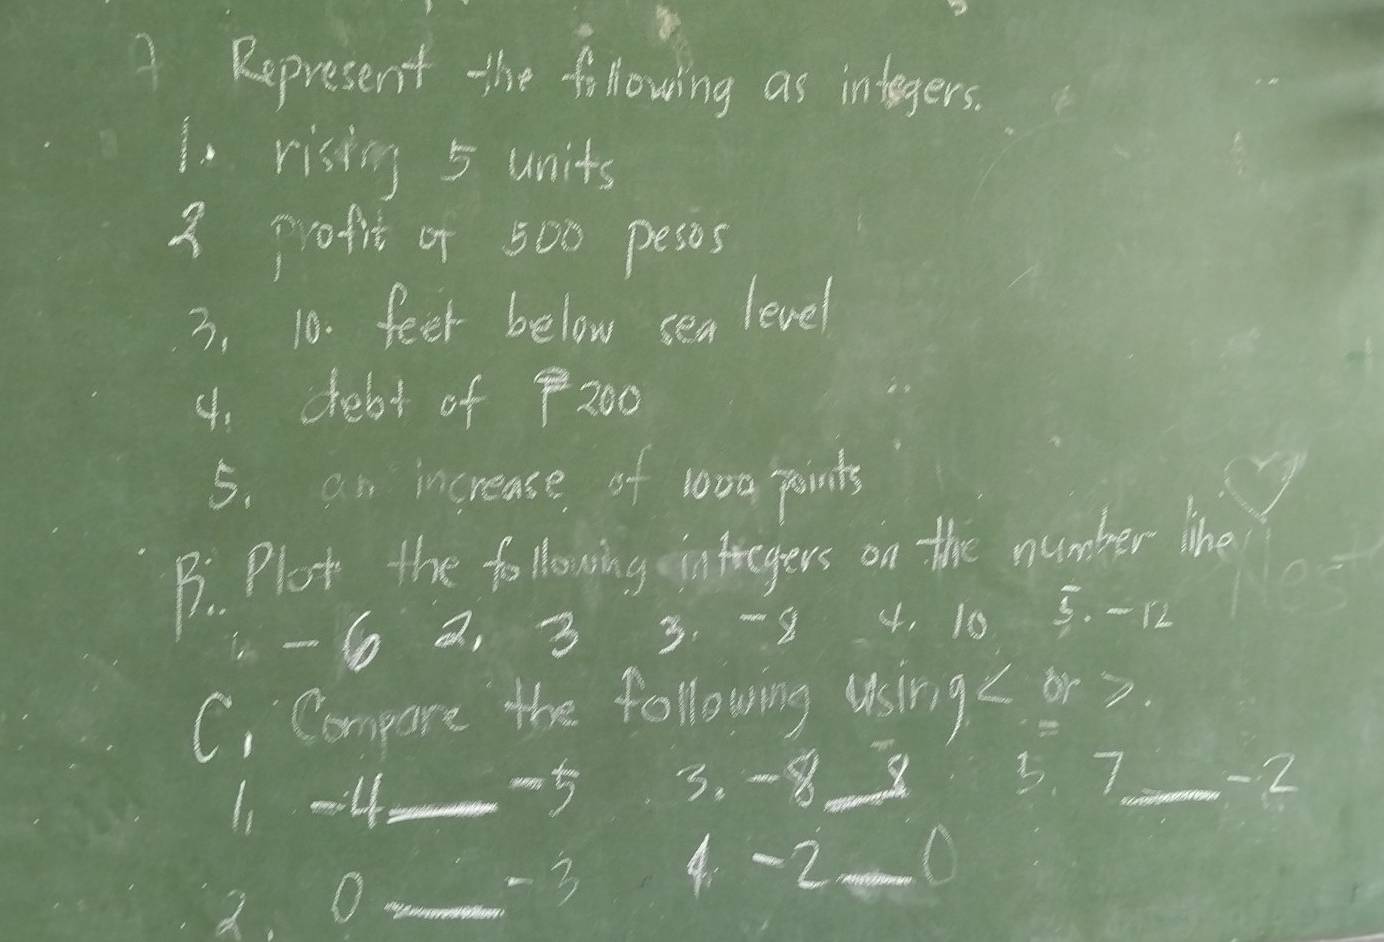 A Represent the following as integers.
1. rising 5 units
2 profit of 500 pesos
3. 10. feet below sea level
4. debt of ₱200
5. an increase of 1000 points
B. Plot the following integers on the number line
1. -6 2. 3 3. -8 4. 10 5. -12
C. Compare the following using < or >.
=
1. -4 ___ -5 3. -8 ___ -8 5. 7 ___ -2
2. 0 ___ -3 4. -2 ___ 0